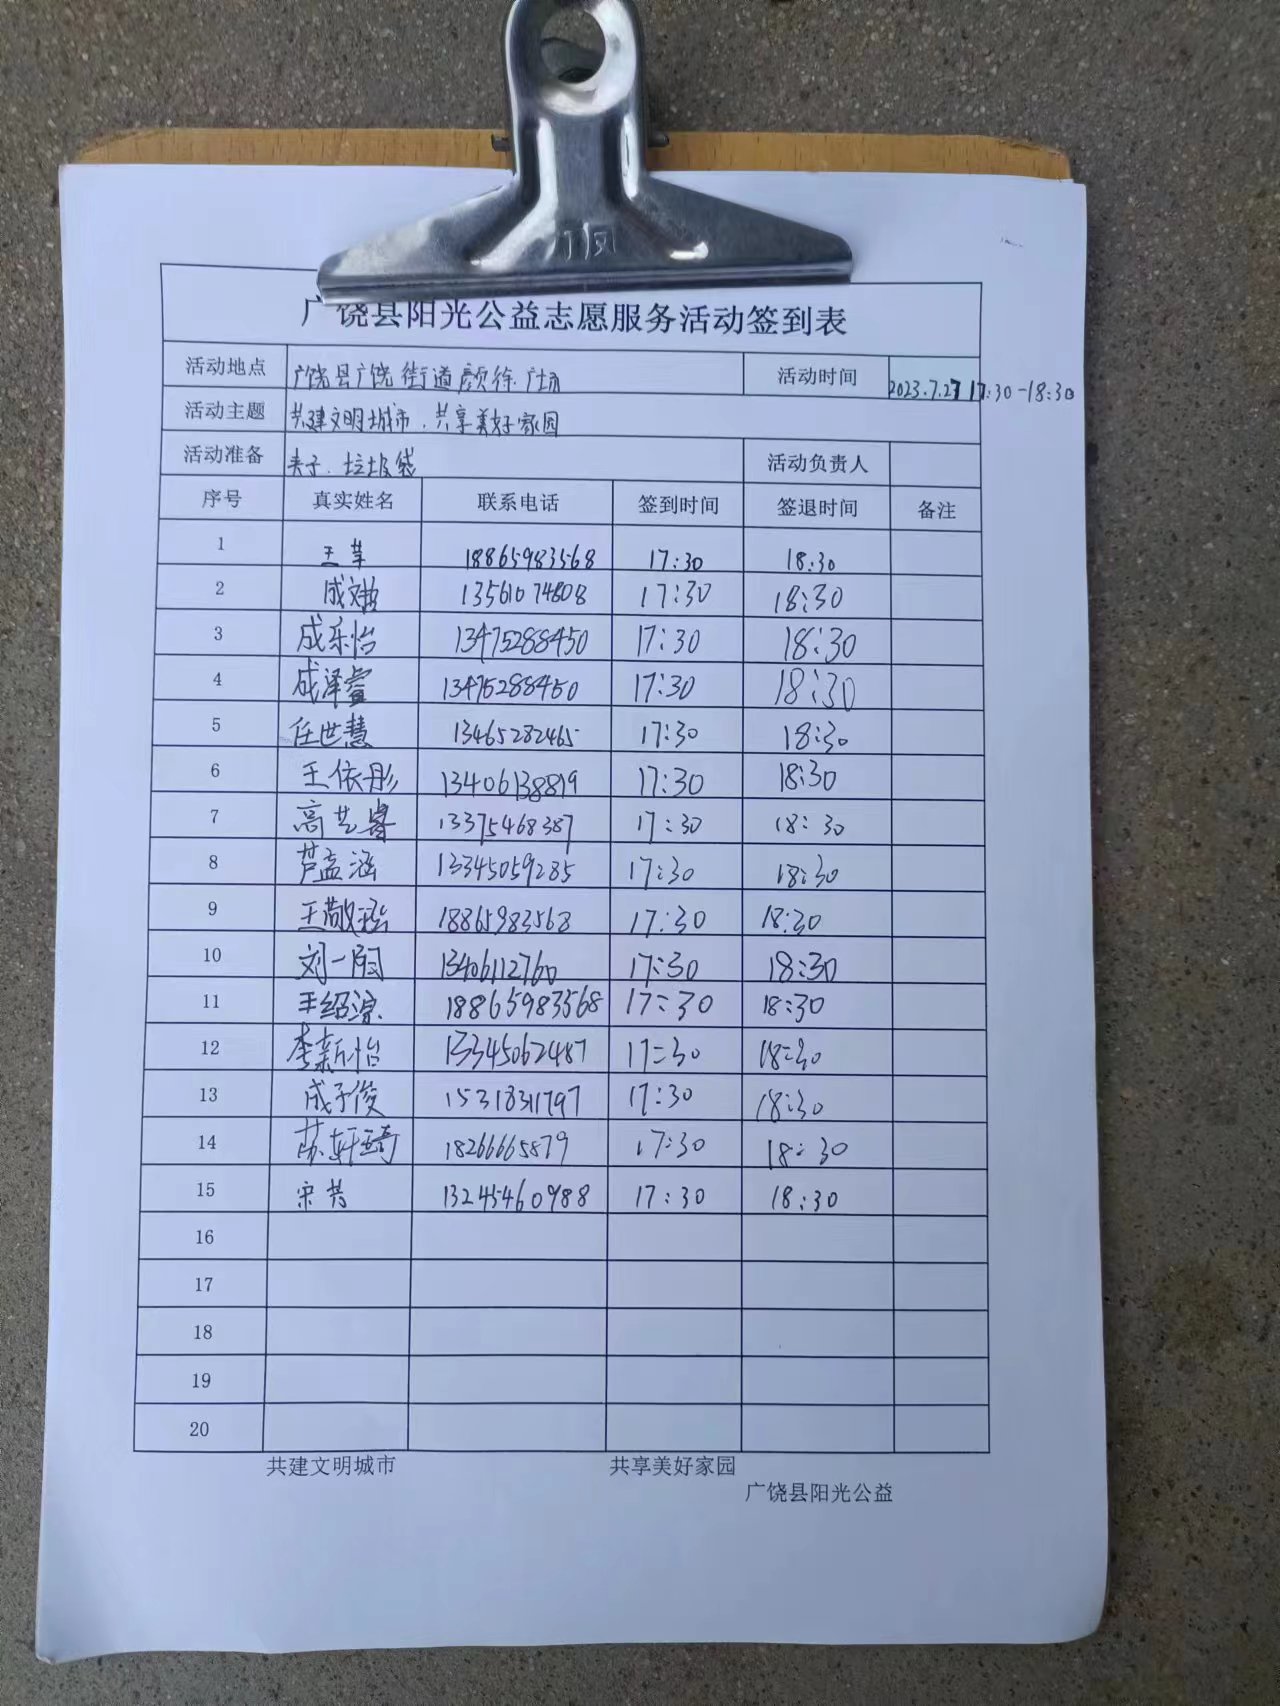 广饶县阳光公益志愿服务活动签到表
活动地点 广饶县广饶街道颜徐广场 活动时间 2023.7.27 17:30-18:30
活动主题 共建文明城市、共享美好家园
活动准备 夹子、垃圾袋 活动负责人
序号 真实姓名 联系电话 签到时间 签退时间 备注
1 18865983568 17:30 18:30
2 13561074808 17:30 18:30
3 成乐怡 13475288450 17:30 18:30
4 成泽睿 13475288450 17:30 18:30
5 任世慧 13465282465 17:30 18:30
6 王依彤 13406138819 17:30 18:30
7 高艺睿 13375468387 17:30 18:30
8 芦孟涵 13345059285 17:30 18:30
9 18865983568 17:30 18:30
10 13406112760 17:30 18:30
11 18865983568 17:30 18:30
12 李新怡 13345062487 17:30 18:30
13 成子俊 15318311797 17:30 18:30
14 苏轩琦 18266665879 17:30 18:30
15 13245460988 17:30 18:30
16
17
18
19
20
共建文明城市 共享美好家园
广饶县阳光公益